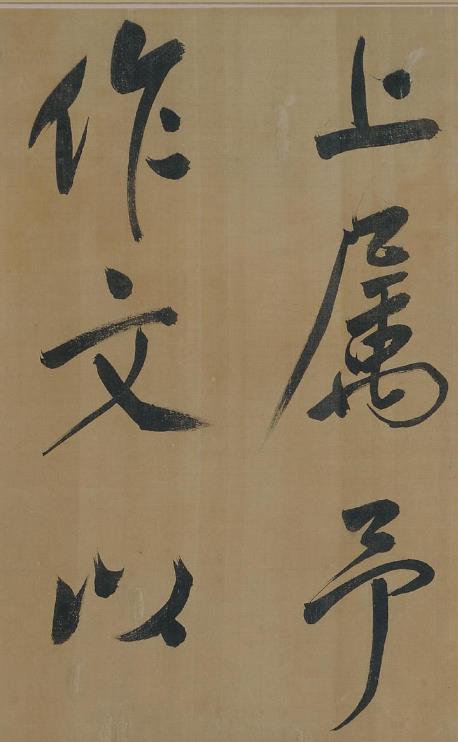 上属予
作文以